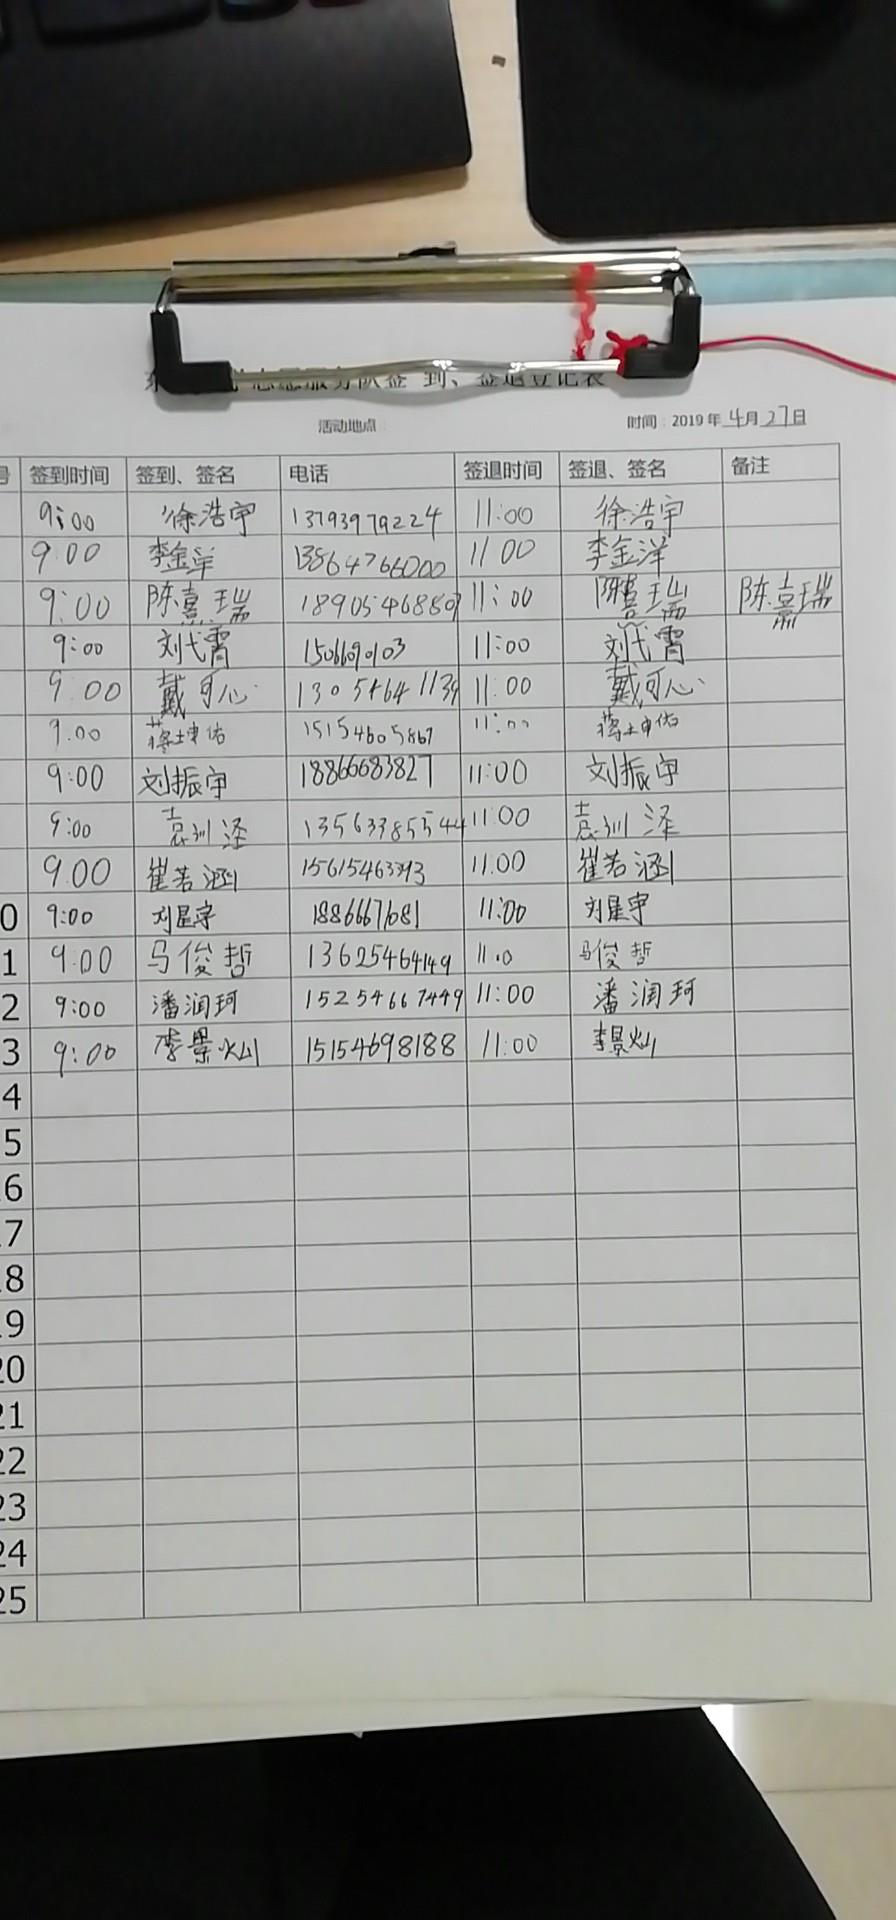 志愿服务队签 到、签退登记表
活动地点 时间：2019年4月27日
号 签到时间 签到、签名 电话 签退时间 签退、签名 备注
9:00 徐浩宇 13793979224 11:00 徐浩宇
9:00 李金洋 13864766000 11 00 李金洋
9:00 陈熹瑞 18905468809 11:00 陈熹瑞 陈熹瑞
9:00 刘代霄 11:00 刘代霄
9:00 戴可心 13054641139 11:00 戴可心
9:00 蒋坤佑 15154605867 11:00 蒋坤佑
9:00 刘振宇 18866683827 11:00 刘振宇
9:00 袁训泽 13563385544 11:00 袁训泽
9:00 崔若涵 11:00 崔若涵
0 9:00 刘星宇 18866671681 11:00 刘星宇
1 9:00 马俊哲 13625464149 11:0 马俊哲
2 9:00 潘润珂 15254667449 11:00 潘润珂
3 9:00 李景灿 15154698188 11:00 李景灿
4
5
6
7
8
9
20
21
22
23
24
25